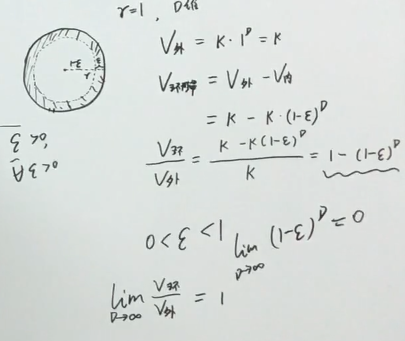 r=1, D维
V外 = K·1^D = K
V环形带 = V外 - V内
= K - K·(1-ε)^D
V环/V外 = (K-K(1-ε)^D)/K = 1-(1-ε)^D
0<ε<1 lim D→∞ (1-ε)^D = 0
lim D→∞ V环/V外 = 1
1-ε